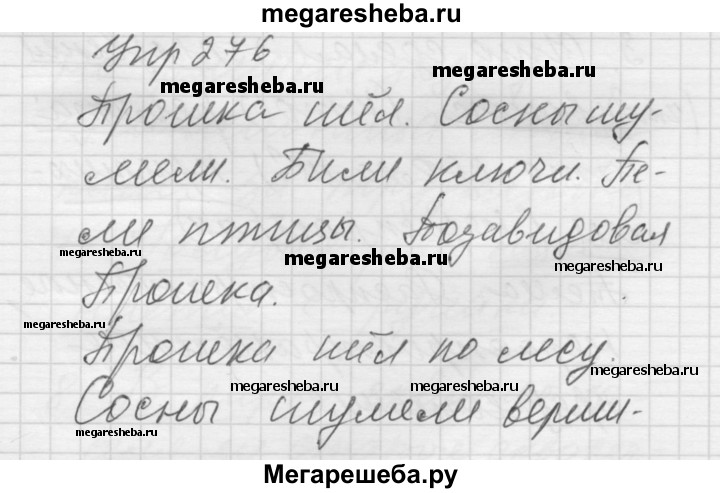 megaresheba.ru
Упр 276
megaresheba.ru
megaresheba.ru
Прошка шёл. Сосны шу-
мели. Били ключи. Пе-
ли птицы. Позавидовал
megaresheba.ru
megaresheba.ru
megaresheba.ru
Прошка.
megaresheba.ru
Прошка шёл по лесу.
megaresheba.ru
megaresheba.ru
megaresheba.ru
Сосны шумели верши-
megaresheba.ru
megaresheba.ru
Мегарешеба.ру